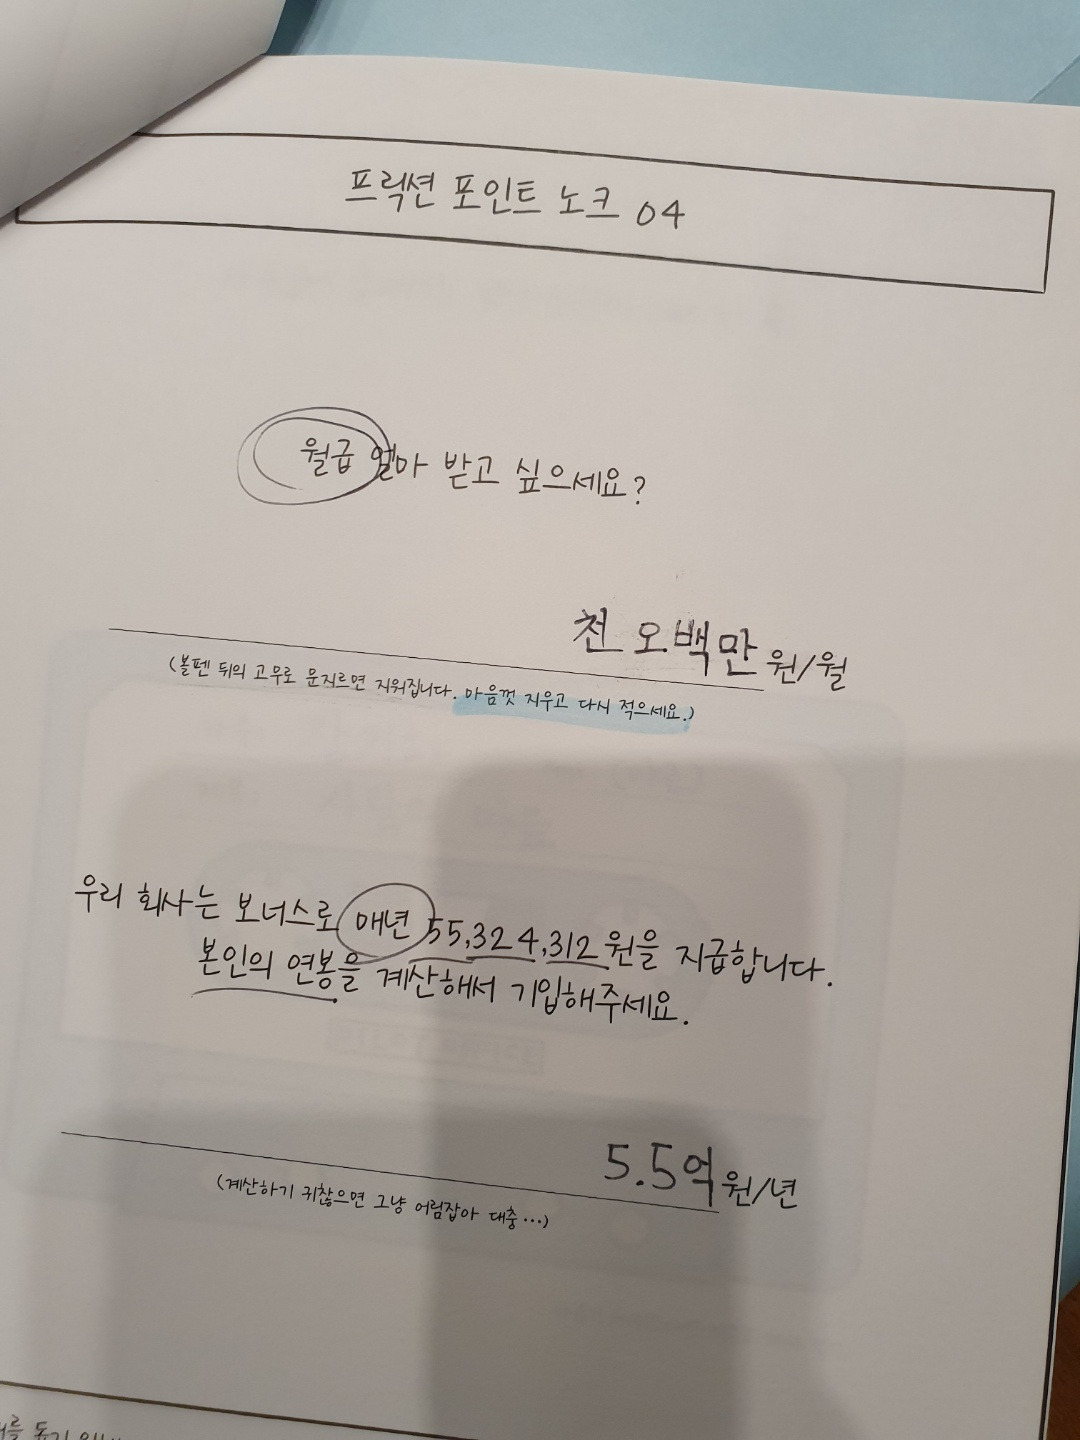 프릭션 포인트 노크 04
월급 얼마 받고 싶으세요?
천 오백만 원/월
(볼펜 뒤의 고무로 문지르면 지워집니다. 마음껏 지우고 다시 적으세요.)
우리 회사는 보너스로 매년 55,324,312 원을 지급합니다.
본인의 연봉을 계산해서 기입해주세요.
5.5억 원/년
(계산하기 귀찮으면 그냥 어림잡아 대충...)